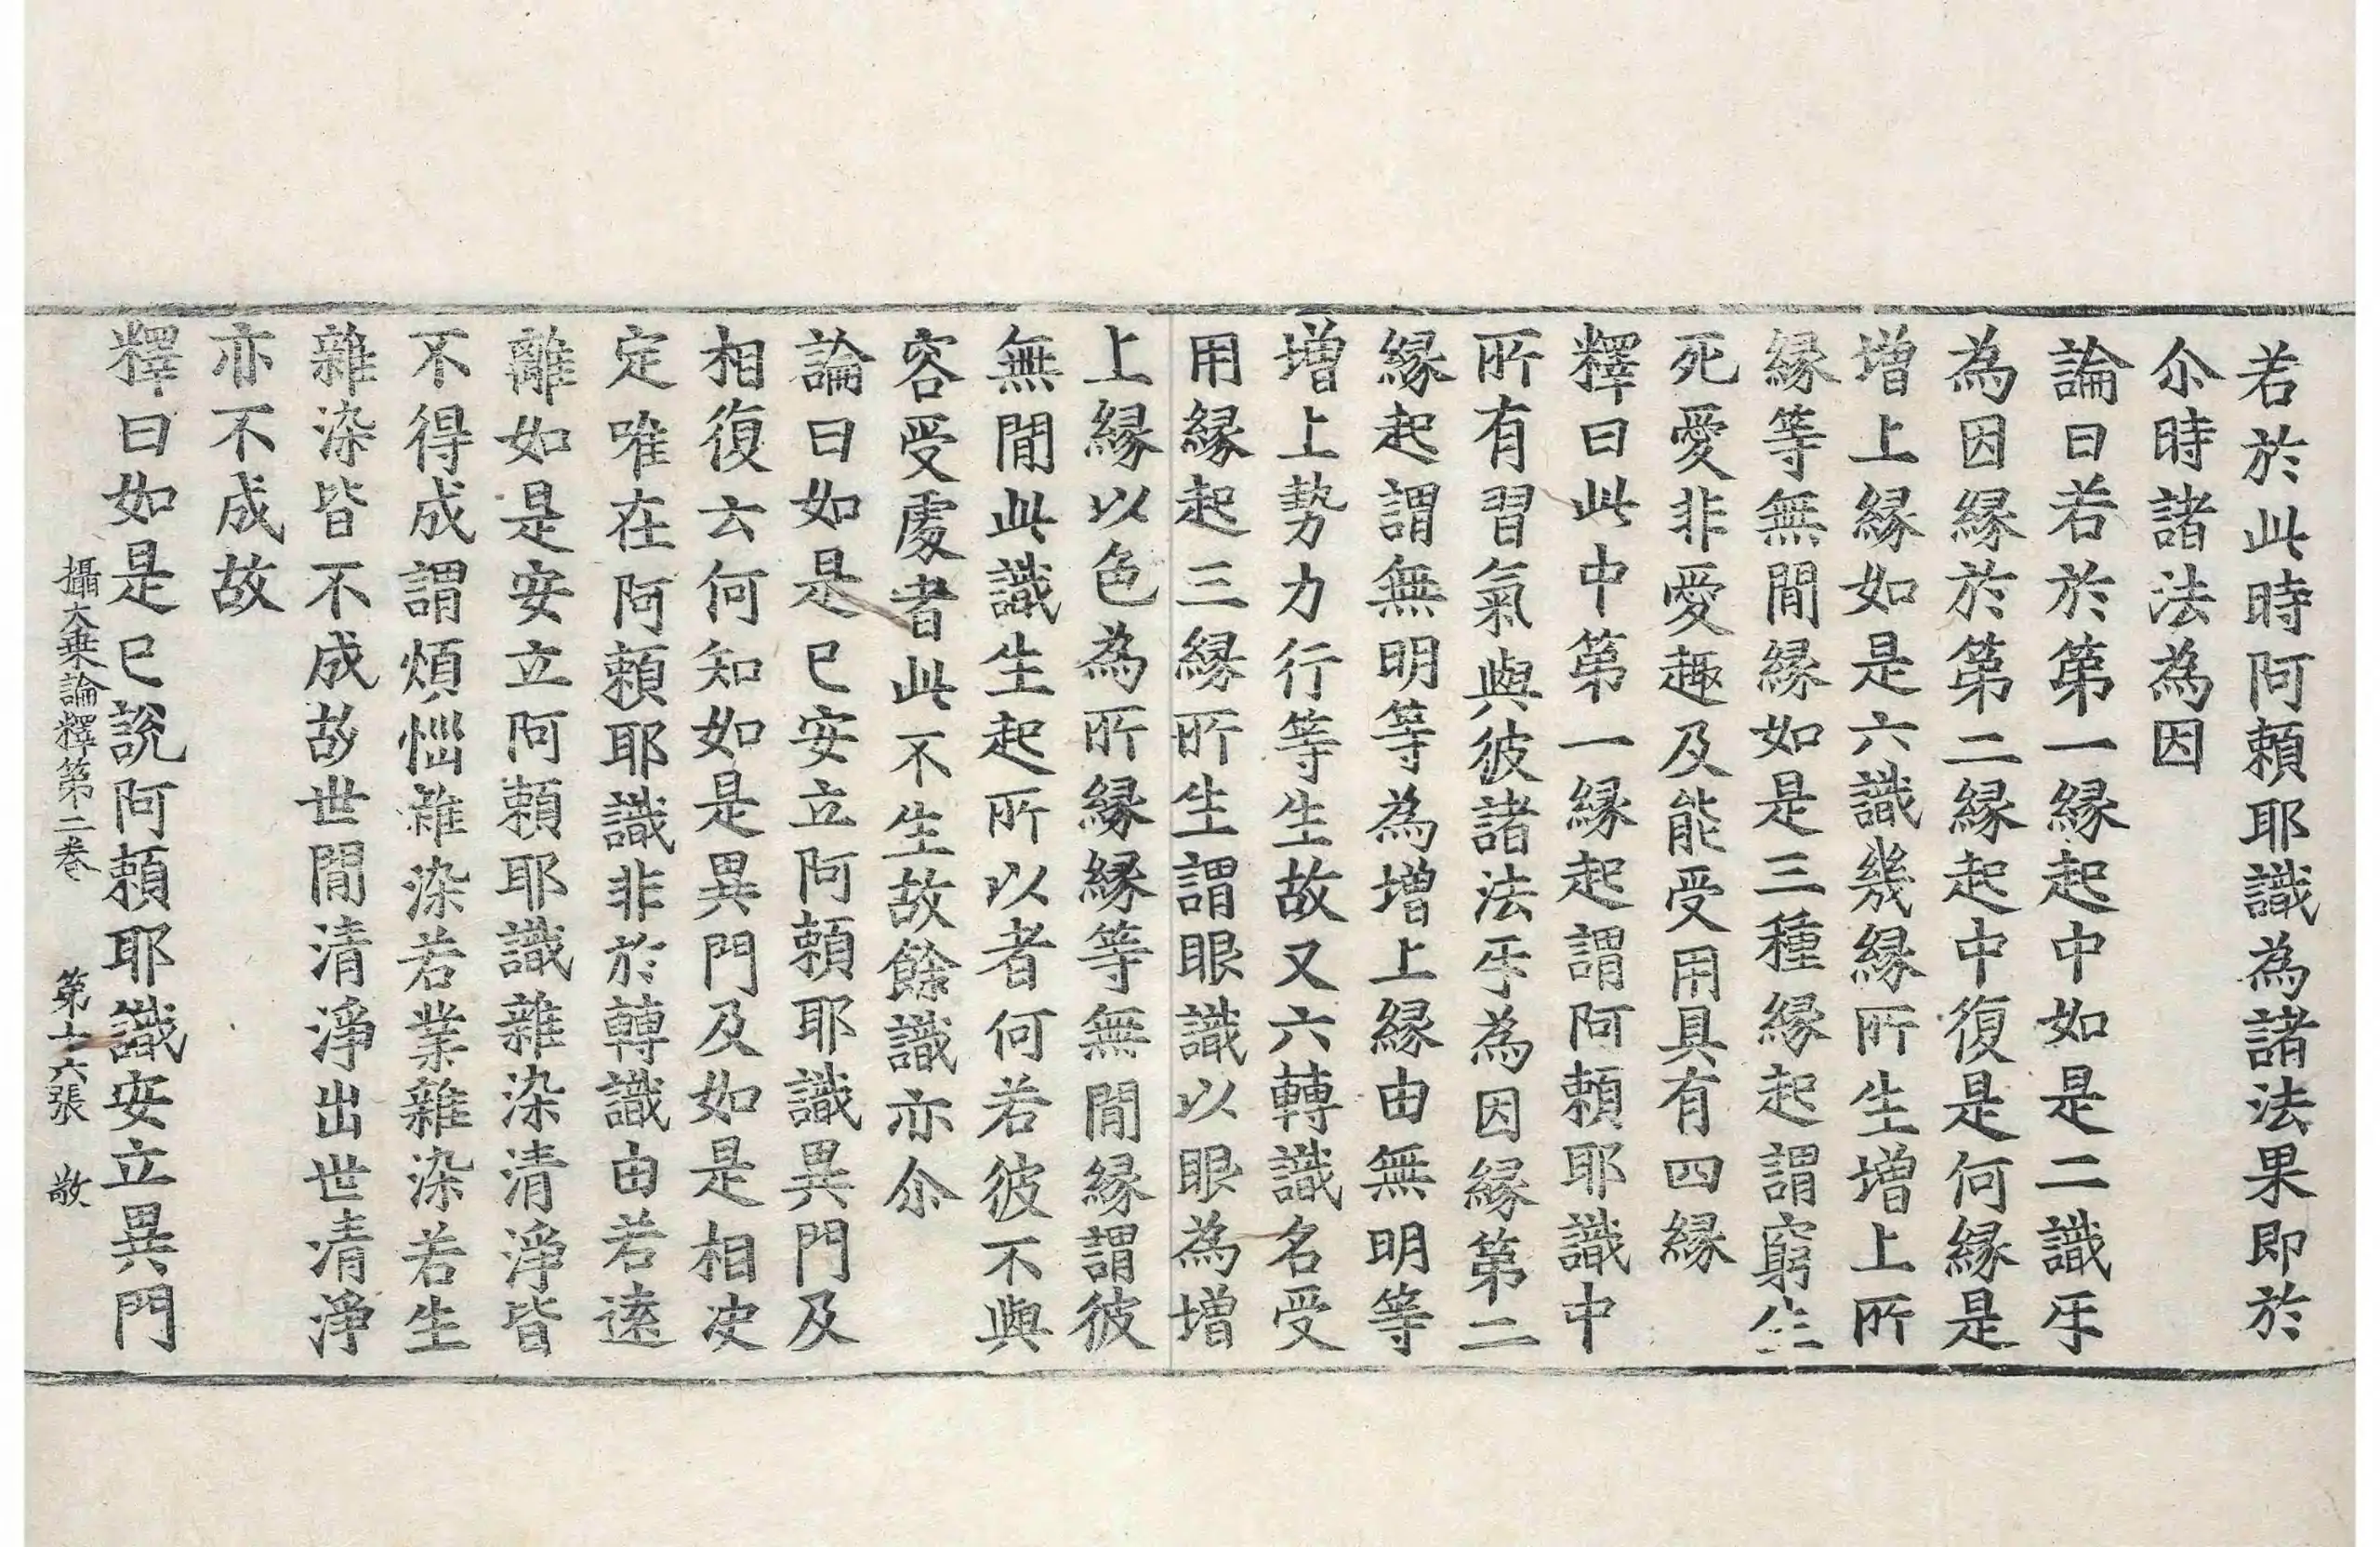 若於此時阿頼耶識為諸法果即於
尒時諸法為因
論曰若於第一縁起中如是二識㸦
為因縁於第二縁起中復是何縁是
増上縁如是六識幾縁所生増上所
縁等無間縁如是三種縁起謂窮生
死愛非愛趣及能受用具有四縁
釋曰此中第一縁起謂阿頼耶識中
所有習氣與彼諸法㸦為因縁第二
縁起謂無明等為増上縁由無明等
増上勢力行等生故又六轉識名受
用縁起三縁所生謂眼識以眼為増
上縁以色為所縁縁等無間縁謂彼
無間此識生起所以者何若彼不與
容受處者此不生故餘識亦尒
論曰如是已安立阿頼耶識異門及
相復云何知如是異門及如是相决
定唯在阿頼耶識非於轉識由若遠
離如是安立阿頼耶識雜染清淨皆
不得成謂煩惱雜染若業雜染若生
雜染皆不成故世間清淨出世清淨
亦不成故
釋曰如是已說阿頼耶識安立異門
攝大乗論釋第二卷　第十六張　敬